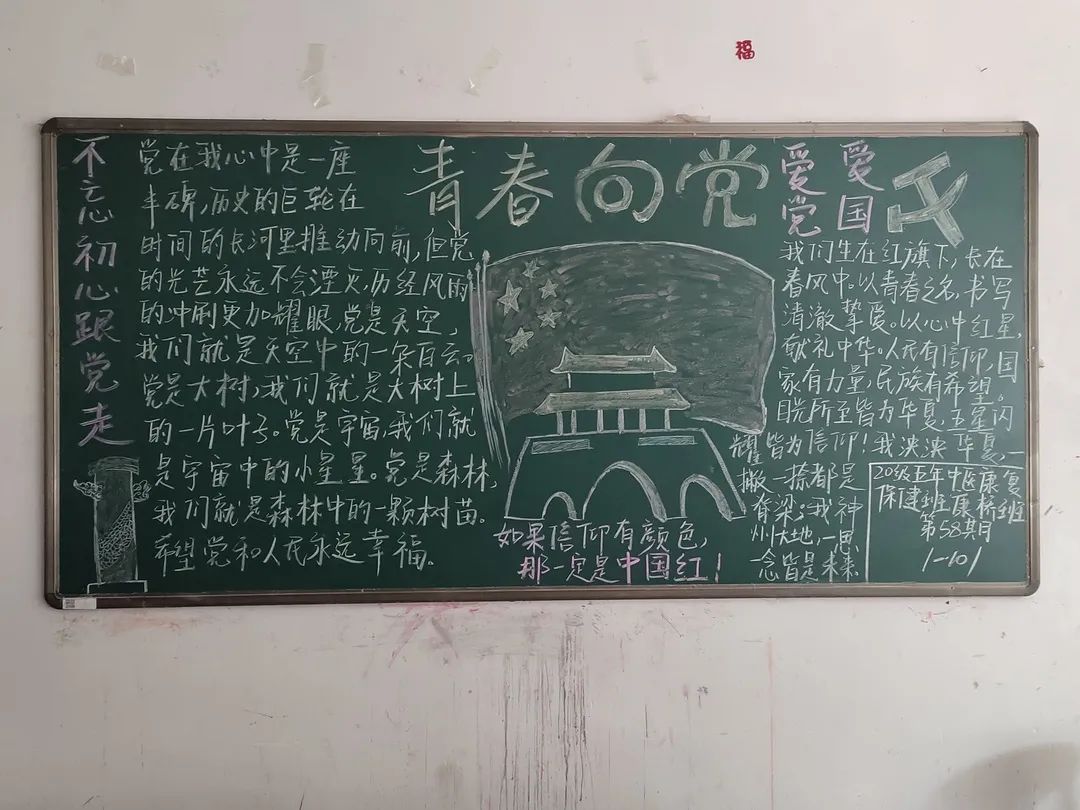 福
不忘初心跟党走
党在我心中是一座
丰碑,历史的巨轮在
时间的长河里推动向前,但党
的光芒永远不会湮灭,历经风雨
的冲刷更加耀眼,党是天空,
我们就是天空中的一朵白云。
党是大树,我们就是大树上
的一片叶子。党是宇宙,我们就
是宇宙中的小星星。党是森林,
我们就是森林中的一颗树苗。
希望党和人民永远幸福。
青春向党
如果信仰有颜色,
那一定是中国红!
爱党
爱国
我们生在红旗下,长在
春风中。以青春之名,书写
清澈挚爱。以心中红星,
献礼中华。人民有信仰,国
家有力量,民族有希望。
目光所至皆为华夏,五星闪
耀皆为信仰!我泱泱华夏,一
撇一捺都是
脊梁;我神
州大地,一思
一念皆是未来.
20级五年中医康复
保建班康桥班
第58其月
1-10